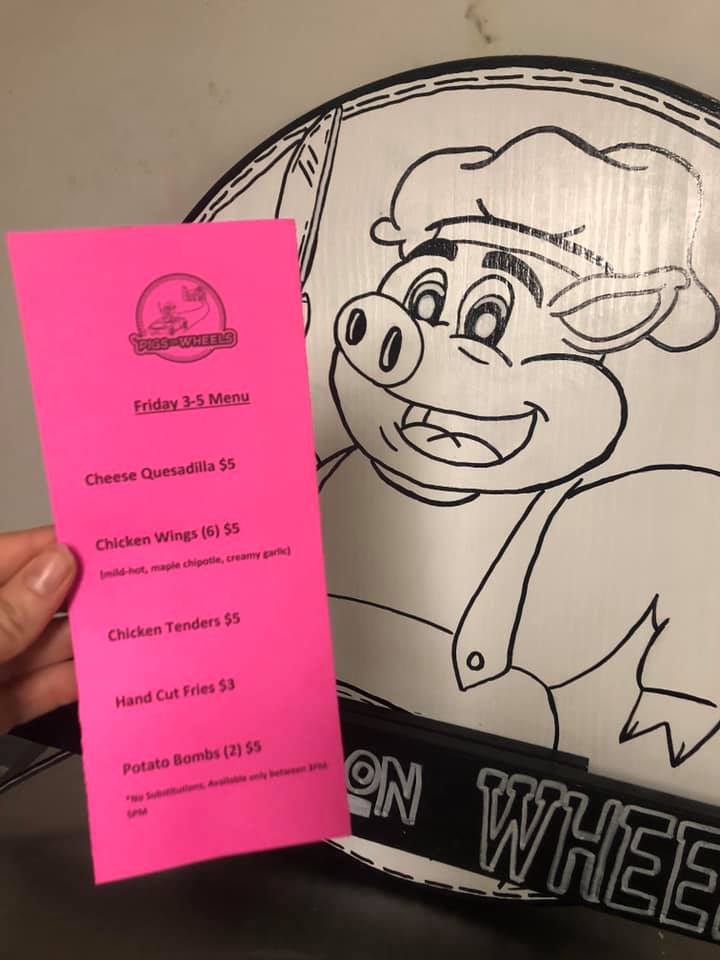 PIGS ON WHEELS
Friday 3-5 Menu
Cheese Quesadilla $5
Chicken Wings (6) $5
(mild-hot, maple chipotle, creamy garlic)
Chicken Tenders $5
Hand Cut Fries $3
Potato Bombs (2) $5
*No Substitutions, Available only between 3PM
5PM
ON WHEE